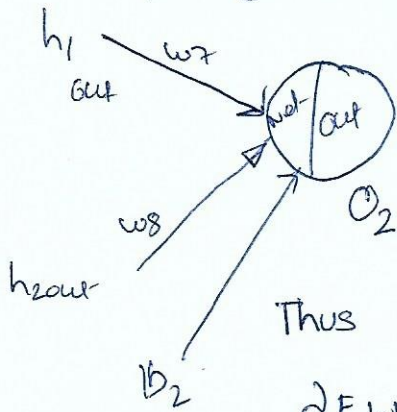 h1 out
w7
net out
O2
w8
h2out
b2
Thus